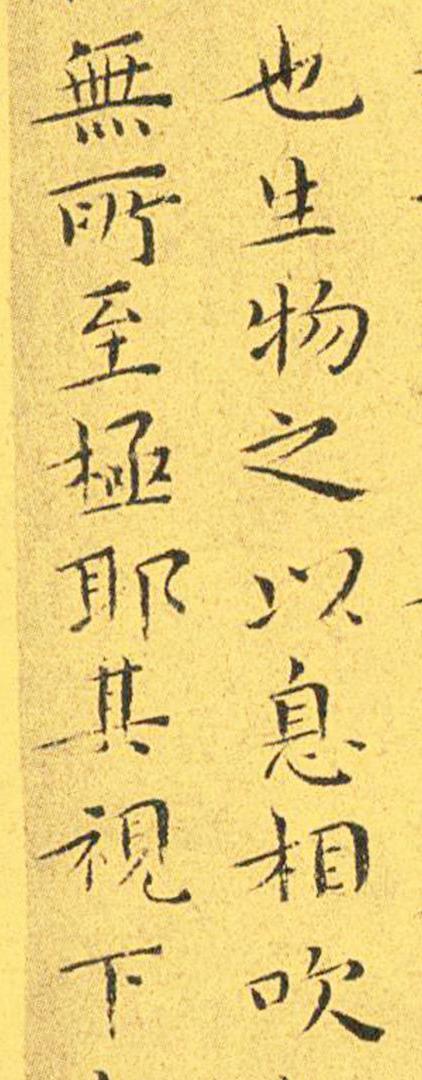 也生物之以息相吹
無所至極耶其視下